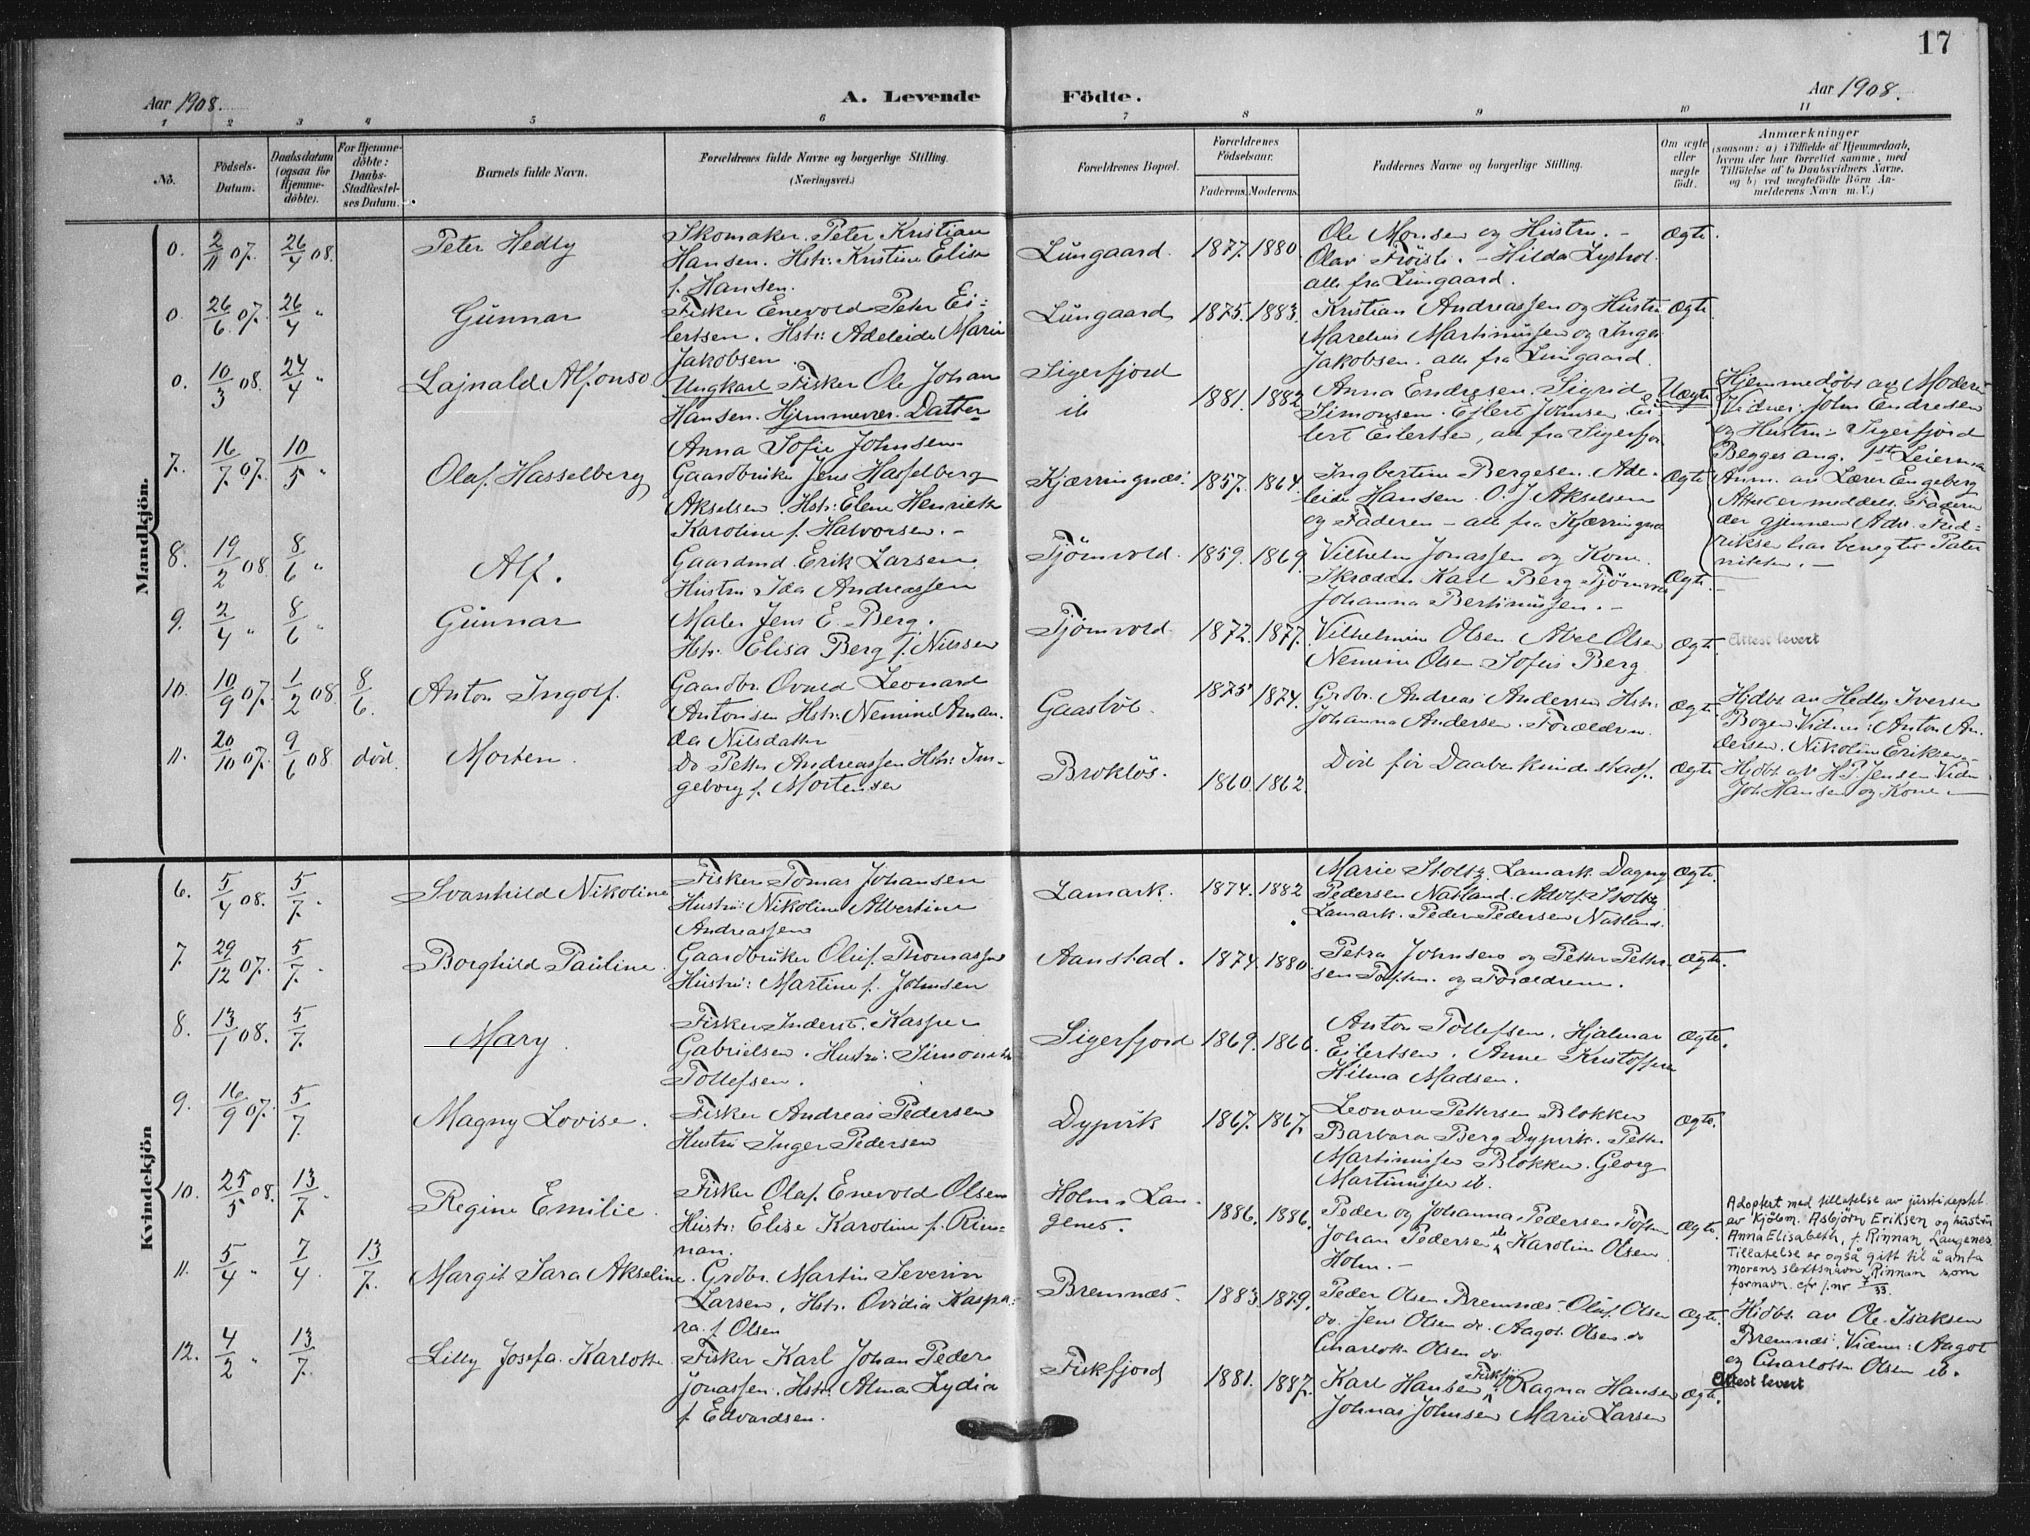 17
Aar 1908.
A. Levende Födte.
Aar 1908.
1 2 3 4 5 6 7 8 9 10 11
No.
Födsels-Datum.
Daabsdatum (ogsaa for Hjemmedöbte).
For Hjemmedöbte: Daabs-Stadfæstelses Datum.
Barnets fulde Navn.
Forældrenes fulde Navne og borgerlige Stilling. (Næringsvei.)
Forældrenes Bopæl.
Forældrenes Födselsaar.
Faderens. Moderens.
Faddernes Navne og borgerlige Stilling.
Om ægte eller uægte födt.
Anmærkninger
(saasom: a) i Tilfælde af Hjemmedaab, hvem der har forrettet samme, med Tilföielse af to Daabsvidners Navne. og b) ved uægtefödte Börn Anmelderens Navn m. V.)
Mandkjön.
0. 2/11 07. 26/4 08. Peter Hedly
Skomaker Peter Kristian
Hansen. Hstr: Kristine Elise
f. Hansen.
Lungaard. 1877. 1880.
Ole Monsen og Hustru. -
Olav - Hilda
alle fra Lungaard.
Ægte.
0. 26/6 07. 26/4 " Gunnar
Fisker Enevold Peter Ei=
lertsen. Hstr: Adeleide Marie
Jakobsen.
Lungaard 1875. 1883.
Kristian Andreassen og Hustru
Marelius Martinussen og Inger
Jakobsen. alle fra Lungaard.
Ægte
0. 10/3 08. 24/4 " Lajnald Alfonso
Ungkarl Fisker Ole Johan
Hansen. Hjemmevær. Datter
Anna Sofie Johnsen
Sigerfjord
ib 1881. 1882
Anna Endresen. Sigrid
Simonsen. Ejlert Johnsen Ei-
lert Eilertsen, alle fra Sigerfjor
Uægte
Hjemmedøbt av Moderen
Vidner: John Endresen
og Hustru: Sigerfjord
Begges ang. 1ste Leierm
Anm. av Lærer Engeberg
meddelt Faderen
der gjennem Adv. Fred=
riksen har benegtet Pater
niteten. -
7. 16/7 07. 10/5 " Olaf Hasselberg
Gaardbruker Jens Hasselberg
Akselsen. Hstr: Elene Henriette
Karoline f. Halvorsen. -
Kjærringnæs. 1857. 1864.
Ingbertine Bergesen. Ade-
leide Hansen. O. J. Akselsen
og Faderen - alle fra Kjærringnæ
Ægte
8. 19/2 08. 8/6 " Alf.
Gaardmd. Erik Larsen
Hustru Ida Andreassen
Tjömvold. 1859. 1869.
Vilhelm Jonassen og Kone.
Skrædder Karl Berg Tjömvol
Johanna Bertinussen. -
Ægte.
9. 2/4 " 8/6 " Gunnar
Maler Jens E. Berg.
Hstr. Elisa Berg f. Nilssen
Tjömvold. 1872. 1877.
Vilhelmine Olsen Abel Olsen
Nemine Olsen Sofus Berg
Ægte.
Attest levert
10. 10/9 07. 1/2 08. 8/6. Anton Ingolf.
Gaardbr. Leonard
Antonsen Hstr: Nemine Aman
da Nilsdatter
Gaasløb. 1875 1874.
Grdbr. Andreas Andersen Hstr:
Johanna Andersen. Forældrene.
Ægte.
Hjdbt av Hedly Iversen
Bogen Vidner: Anton An
dersen. Nikoline Eriksen.
11. 20/10 07. 9/6 08 död. Morten.
Do Petter Andreassen Hstr: In-
geborg f. Mortensen
Brokløs. 1860. 1862.
Död för Daabens kunde stadf.
Ægte
Hjdbt av H. P. Jensen Vidn
Joh Hansen og Kone -
Kvindekjön
6. 5/4 08. 5/7. Svanhild Nikoline
Fisker Tomas Johansen
Hustru: Nikoline Albertine
Andreassen
Lamark. 1874. 1882
Marie Stoltz. Lamark. Dagny
Pedersen Natland. Adolf Stoltz
Lamark. Peder Pedersen Natland.
Ægte.
7. 29/12 07. 5/7. Borghild Pauline.
Gaardbruker Oluf Thomassen
Hustru: Martine f. Johnsen
Aanstad. 1874. 1880
Petra Johnsen og Petter Petter-
sen og Forældrene.
Ægte.
8. 13/1 08. 5/7. Mary.
Fisker Inderst. Kasper
Gabrielsen. Hustru: Simonette
Tollefsen.
Sigerfjord 1869. 1866.
Anton Tollefsen. Hjalmar
Eilertsen. Anne
Hilma Madsen.
Ægte.
9. 16/9 07. 5/7. Magny Lovise.
Fisker Andreas Pedersen
Hustru Inger Pedersen
Dypvik 1867. 1867.
Leonore Pettersen Blokken
Barbara Berg Dypvik. Petter
Martinussen Blokken. Georg
Martinussen ib.
Ægte.
10. 25/5 08. 13/7. Regine Emilie.
Fisker Olaf Enevold Olsen
Hustr: Elise Karoline f. Rin=
nan.
Holm i Lan-
genes. 1886. 1886.
Peder og Johanna Pedersen
Johan Pedersen ib Karoline Olsen
Holm. -
Ægte.
Adoptert med tillatelse av justisdeptet
av kjøbm. Asbjørn Eriksen og hustru
Anna Elisabeth, f. Rinnan, Langenes.
Tillatelse er også gitt til å anta
morens slektsnavn Rinnan som
fornavn. cfr j.nr 7/33.
11. 5/4 " 7/4. 13/7. Margit Sara Akseline.
Grdbr. Martin Severin
Larsen, Hstr. Ovidia Kaspa=
ra f. Olsen
Bremnæs. 1883. 1879.
Peder Olsen Bremnæs. Oluf Olsen
do. Jens Olsen do. Aagot Olsen do
Charlotte Olsen do
Ægte.
Hjdbt av Ole Isaksen
Bremnæs: Vidner: Aagot
og Charlotte Olsen ib.
12. 4/2 " 13/7. Lilly Josefa Karlotte
Fisker Karl Johan Peder
Jonassen. Hstr: Alma Lydia
f. Edvardsen.
Fiskfjord 1881. 1887.
Karl Hansen Fiskfjor Ragna Hansen
Johnas Johnsen Marie Larsen
Ægte.
Attest levert